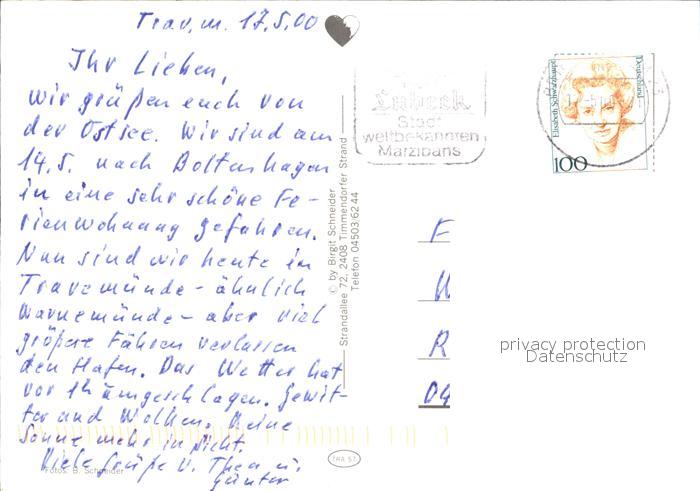 Trav. m. 17.5.00
Ihr Lieben,
wir grüßen euch von
der Ostsee. Wir sind am
14.5. nach Boltenhagen
in eine sehr schöne Fe-
rienwohnung gefahren.
Nun sind wir heute in
Travemünde - ähnlich
Warnemünde - aber viel
größere Fähren verlassen
den Hafen. Das Wetter hat
vor 1h umgeschlagen. Gewit-
ter und Wolken. Keine
Sonne mehr in Sicht.
Viele Grüße v. Thea u.
Günter
Fotos: B. Schneider
© by Birgit Schneider
Strandallee 72, 2408 Timmendorfer Strand
Telefon 04503/6244
TRA 57
Lübeck
Stadt
weltbekannten
Marzipans
Elisabeth Schwarzhaupt
Deutschland
100
F
R
04
privacy protection
Datenschutz